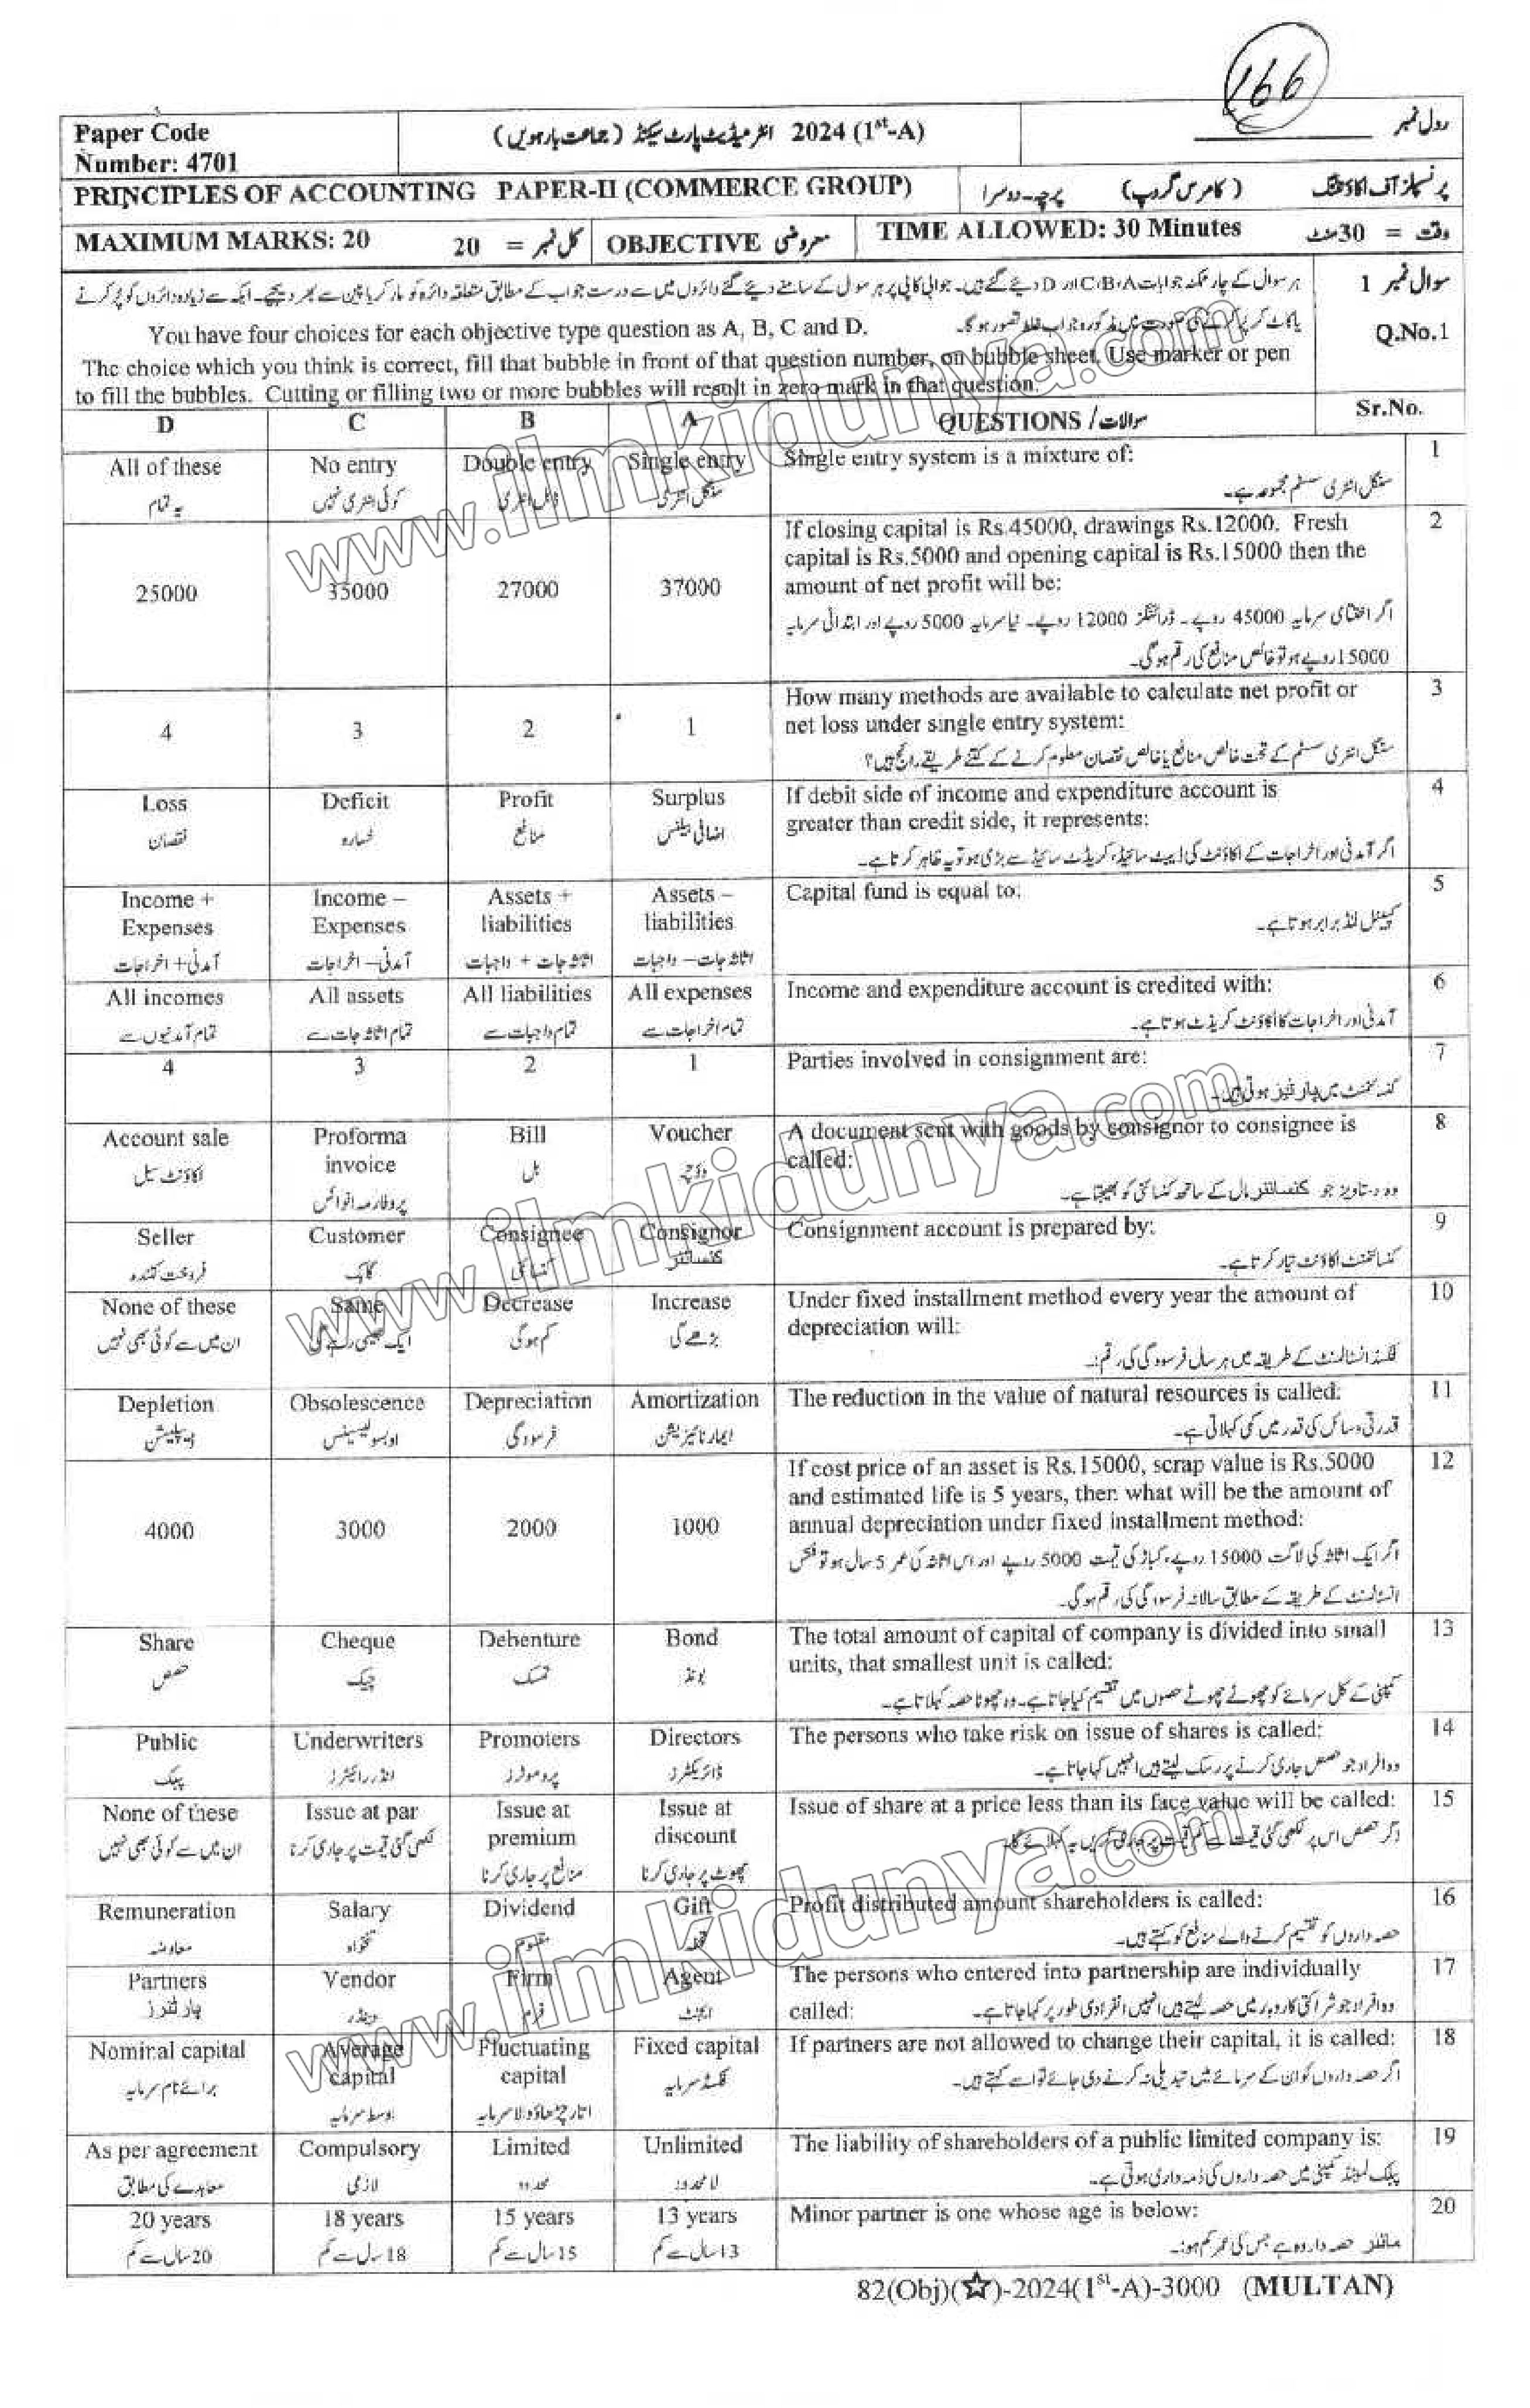 166
Paper Code
Number: 4701
2024 (1st-A) انٹرمیڈیٹ پارٹ سیکنڈ (جماعت بارہویں)
رول نمبر
PRINCIPLES OF ACCOUNTING PAPER-II (COMMERCE GROUP)
پرنسپلز آف اکاؤنٹنگ (کامرس گروپ) پرچہ۔دوسرا
MAXIMUM MARKS: 20
کل نمبر = 20
OBJECTIVE معروضی
TIME ALLOWED: 30 Minutes
وقت = 30 منٹ
سوال نمبر 1
ہر سوال کے چار ممکنہ جوابات A،B،C اور D دیئے گئے ہیں۔ جوابی کاپی پر ہر سوال کے سامنے دیئے گئے دائروں میں سے درست جواب کے مطابق متعلقہ دائرہ کو مارکر یا پین سے بھر دیجیے۔ ایک سے زیادہ دائروں کو پُر کرنے
یا کاٹ کر پُر کرنے کی صورت میں مذکورہ جواب غلط تصور ہوگا۔
Q.No.1
You have four choices for each objective type question as A, B, C and D.
The choice which you think is correct, fill that bubble in front of that question number, on bubble sheet. Use marker or pen
to fill the bubbles. Cutting or filling two or more bubbles will result in zero mark in that question.
D C B A QUESTIONS / سوالات Sr.No.
All of these No entry Double entry Single entry Single entry system is a mixture of: 1
یہ تمام کوئی انٹری نہیں ڈبل انٹری سنگل انٹری سنگل انٹری سسٹم مجموعہ ہے۔
If closing capital is Rs.45000, drawings Rs.12000. Fresh 2
capital is Rs.5000 and opening capital is Rs.15000 then the
25000 35000 27000 37000 amount of net profit will be:
اگر اختتامی سرمایہ 45000 روپے۔ ڈرائنگز 12000 روپے۔ نیا سرمایہ 5000 روپے اور ابتدائی سرمایہ
15000 روپے ہو تو خالص منافع کی رقم ہوگی۔
How many methods are available to calculate net profit or 3
4 3 2 1 net loss under single entry system:
سنگل انٹری سسٹم کے تحت خالص منافع یا خالص نقصان معلوم کرنے کے کتنے طریقے رائج ہیں؟
Loss Deficit Profit Surplus If debit side of income and expenditure account is 4
نقصان خسارہ منافع اضافی بیلنس greater than credit side, it represents:
اگر آمدنی اور اخراجات کے اکاؤنٹ کی ڈیبٹ سائیڈ، کریڈٹ سائیڈ سے بڑی ہو تو یہ ظاہر کرتا ہے۔
Income + Income – Assets + Assets – Capital fund is equal to: 5
Expenses Expenses liabilities liabilities
آمدنی + اخراجات آمدنی – اخراجات اثاثہ جات + واجبات اثاثہ جات – واجبات کیپٹل فنڈ برابر ہوتا ہے۔
All incomes All assets All liabilities All expenses Income and expenditure account is credited with: 6
تمام آمدنیوں سے تمام اثاثہ جات سے تمام واجبات سے تمام اخراجات سے آمدنی اور اخراجات کا اکاؤنٹ کریڈٹ ہوتا ہے۔
4 3 2 1 Parties involved in consignment are: 7
کنسائمنٹ میں پارٹیز ہوتی ہیں۔
Account sale Proforma Bill Voucher A document sent with goods by consignor to consignee is 8
اکاؤنٹ سیل invoice بل واؤچر called:
پروفارمہ انوائس وہ دستاویز جو کنسائنر مال کے ساتھ کنسائنی کو بھیجتا ہے۔
Seller Customer Consignee Consignor Consignment account is prepared by: 9
فروخت کنندہ گاہک کنسائنی کنسائنر کنسائمنٹ اکاؤنٹ تیار کرتا ہے۔
None of these Same Decrease Increase Under fixed installment method every year the amount of 10
ان میں سے کوئی بھی نہیں ایک جیسی رہے گی کم ہوگی بڑھے گی depreciation will:
فکسڈ انسٹالمنٹ کے طریقہ میں ہر سال فرسودگی کی رقم:
Depletion Obsolescence Depreciation Amortization The reduction in the value of natural resources is called: 11
ڈیپلیشن اوبسولیسینس فرسودگی ایمارٹائزیشن قدرتی وسائل کی قدر میں کمی کہلاتی ہے۔
If cost price of an asset is Rs.15000, scrap value is Rs.5000 12
and estimated life is 5 years, then what will be the amount of
4000 3000 2000 1000 annual depreciation under fixed installment method:
اگر ایک اثاثہ کی لاگت 15000 روپے، کباڑ کی قیمت 5000 روپے اور اس اثاثہ کی عمر 5 سال ہو تو فکس
انسٹالمنٹ کے طریقہ کے مطابق سالانہ فرسودگی کی رقم ہوگی۔
Share Cheque Debenture Bond The total amount of capital of company is divided into small 13
حصص چیک تمسک بونڈ units, that smallest unit is called:
کمپنی کے کل سرمائے کو چھوٹے چھوٹے حصوں میں تقسیم کیا جاتا ہے۔ وہ چھوٹا حصہ کہلاتا ہے۔
Public Underwriters Promoters Directors The persons who take risk on issue of shares is called: 14
پبلک انڈر رائیٹرز پروموٹرز ڈائریکٹرز وہ افراد جو حصص جاری کرنے پر رسک لیتے ہیں انہیں کہا جاتا ہے۔
None of these Issue at par Issue at Issue at Issue of share at a price less than its face value will be called: 15
ان میں سے کوئی بھی نہیں لکھی گئی قیمت پر جاری کرنا premium discount اگر حصص اس پر لکھی گئی قیمت سے کم قیمت پر جاری کریں یہ کہلائے گا۔
منافع پر جاری کرنا چھوٹ پر جاری کرنا
Remuneration Salary Dividend Gift Profit distributed amount shareholders is called: 16
معاوضہ تنخواہ مقسوم تحفہ حصہ داروں کو تقسیم کرنے والے منافع کو کہتے ہیں۔
Partners Vendor Firm Agent The persons who entered into partnership are individually 17
پارٹنرز وینڈر فرم ایجنٹ called: وہ افراد جو شراکتی کاروبار میں حصہ لیتے ہیں انہیں انفرادی طور پر کہا جاتا ہے۔
Nominal capital Average Fluctuating Fixed capital If partners are not allowed to change their capital, it is called: 18
برائے نام سرمایہ capital capital فکسڈ سرمایہ اگر حصہ داروں کو ان کے سرمائے میں تبدیلی نہ کرنے دی جائے تو اسے کہتے ہیں۔
اوسط سرمایہ اتار چڑھاؤ والا سرمایہ
As per agreement Compulsory Limited Unlimited The liability of shareholders of a public limited company is: 19
معاہدے کی مطابق لازمی محدود لا محدود پبلک لمیٹڈ کمپنی میں حصہ داروں کی ذمہ داری ہوتی ہے۔
20 years 18 years 15 years 13 years Minor partner is one whose age is below: 20
20 سال سے کم 18 سال سے کم 15 سال سے کم 13 سال سے کم مائنر حصہ دار وہ ہے جس کی عمر کم ہو:۔
82(Obj)(☆)-2024(1st-A)-3000 (MULTAN)
www.ilmkidunya.com
www.ilmkidunya.com
www.ilmkidunya.com